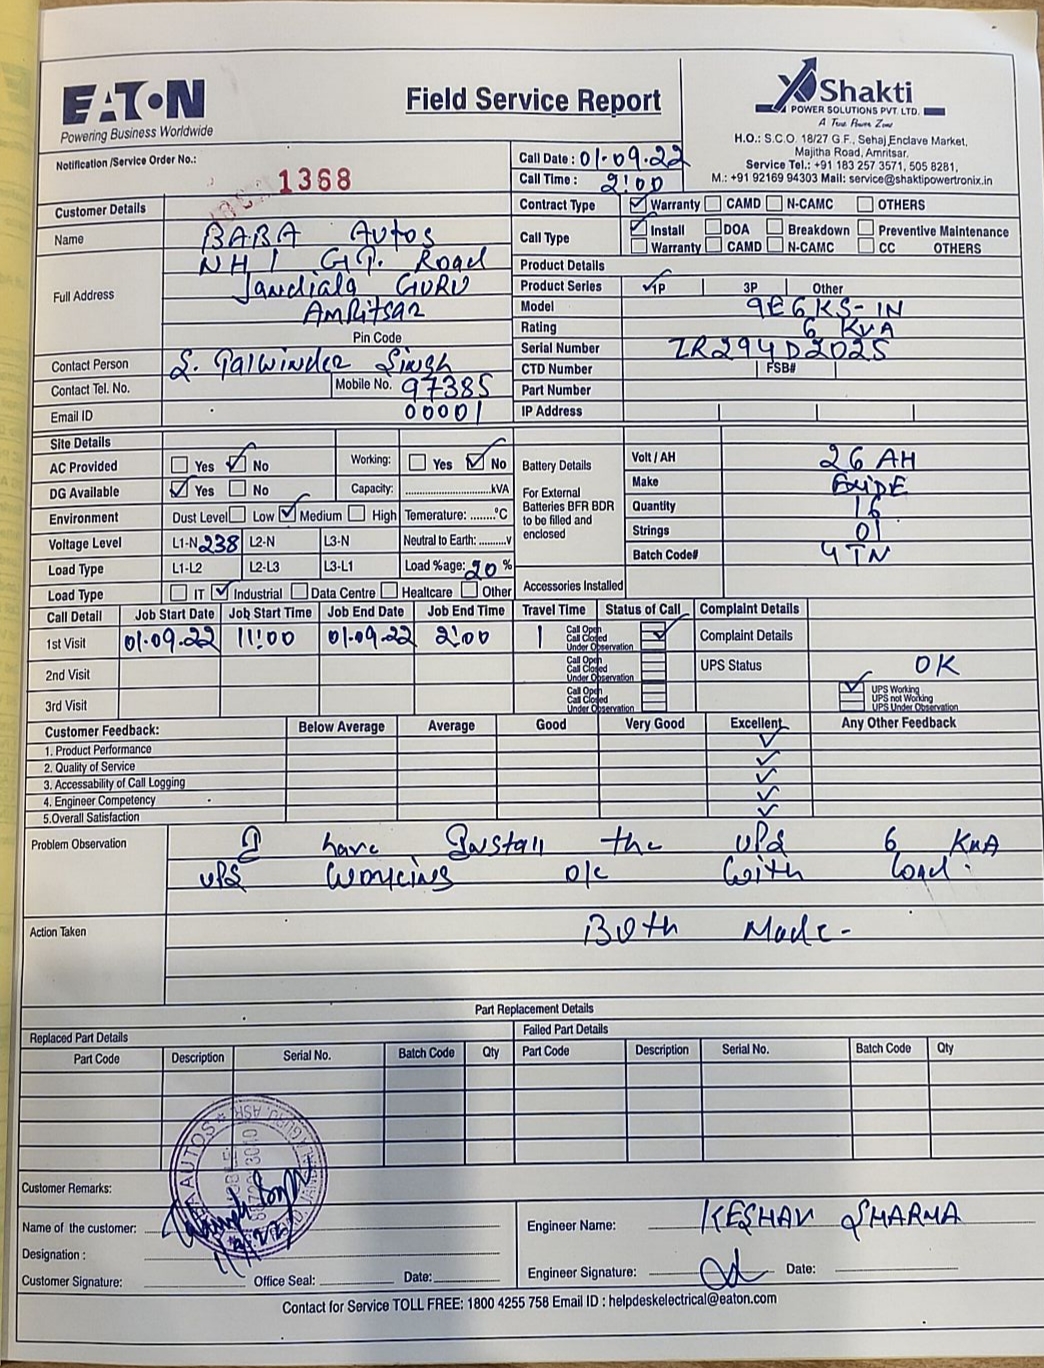 EATON
Powering Business Worldwide
Field Service Report
Shakti
POWER SOLUTIONS PVT. LTD.
A True Power Zone
H.O.: S.C.O. 18/27 G.F., Sehaj Enclave Market,
Majitha Road, Amritsar.
Service Tel.: +91 183 257 3571, 505 8281,
M.: +91 92169 94303 Mail: service@shaktipowertronix.in
Notification /Service Order No.: 1368
Call Date : 01-09-22
Call Time : 2:00
Customer Details
Name BABA Autos
Full Address NH 1 G.T. Road
Jandiala GURU
AmRitsar
Pin Code
Contact Person S. Palwinder Singh
Contact Tel. No. Mobile No. 97385
00001
Email ID
Contract Type Warranty CAMD N-CAMC OTHERS
Call Type Install DOA Breakdown Preventive Maintenance
Warranty CAMD N-CAMC CC OTHERS
Product Details
Product Series 1P 3P Other
Model 9E6KS-IN
Rating 6 KvA
Serial Number ZR294D2025
CTD Number FSB#
Part Number
IP Address
Site Details
AC Provided Yes No Working: Yes No
DG Available Yes No Capacity: ..........kVA
Environment Dust Level Low Medium High Temerature: ........°C
Voltage Level L1-N 238 L2-N L3-N Neutral to Earth: .........v
Load Type L1-L2 L2-L3 L3-L1 Load %age: 20 %
Load Type IT Industrial Data Centre Healtcare Other
Battery Details
For External
Batteries BFR BDR
to be filled and
enclosed
Volt / AH 26 AH
Make ExidE
Quantity 16
Strings 01
Batch Code# 4TN
Accessories Installed
Call Detail Job Start Date Job Start Time Job End Date Job End Time Travel Time Status of Call Complaint Details
1st Visit 01-09-22 11:00 01-09-22 2:00 1 Call Open
Call Closed
Under Observation
Complaint Details
2nd Visit Call Open
Call Closed
Under Observation
UPS Status OK
3rd Visit Call Open
Call Closed
Under Observation
UPS Working
UPS not Working
UPS Under Observation
Customer Feedback: Below Average Average Good Very Good Excellent Any Other Feedback
1. Product Performance
2. Quality of Service
3. Accessability of Call Logging
4. Engineer Competency
5.Overall Satisfaction
Problem Observation I have Install the UPS 6 KvA
UPS Working o/c With load.
Action Taken Both Mode-
Part Replacement Details
Replaced Part Details Failed Part Details
Part Code Description Serial No. Batch Code Qty Part Code Description Serial No. Batch Code Qty
Customer Remarks:
Name of the customer:
Designation :
Customer Signature: Office Seal: Date:
Engineer Name: KESHAV SHARMA
Engineer Signature: Date:
Contact for Service TOLL FREE: 1800 4255 758 Email ID : helpdeskelectrical@eaton.com